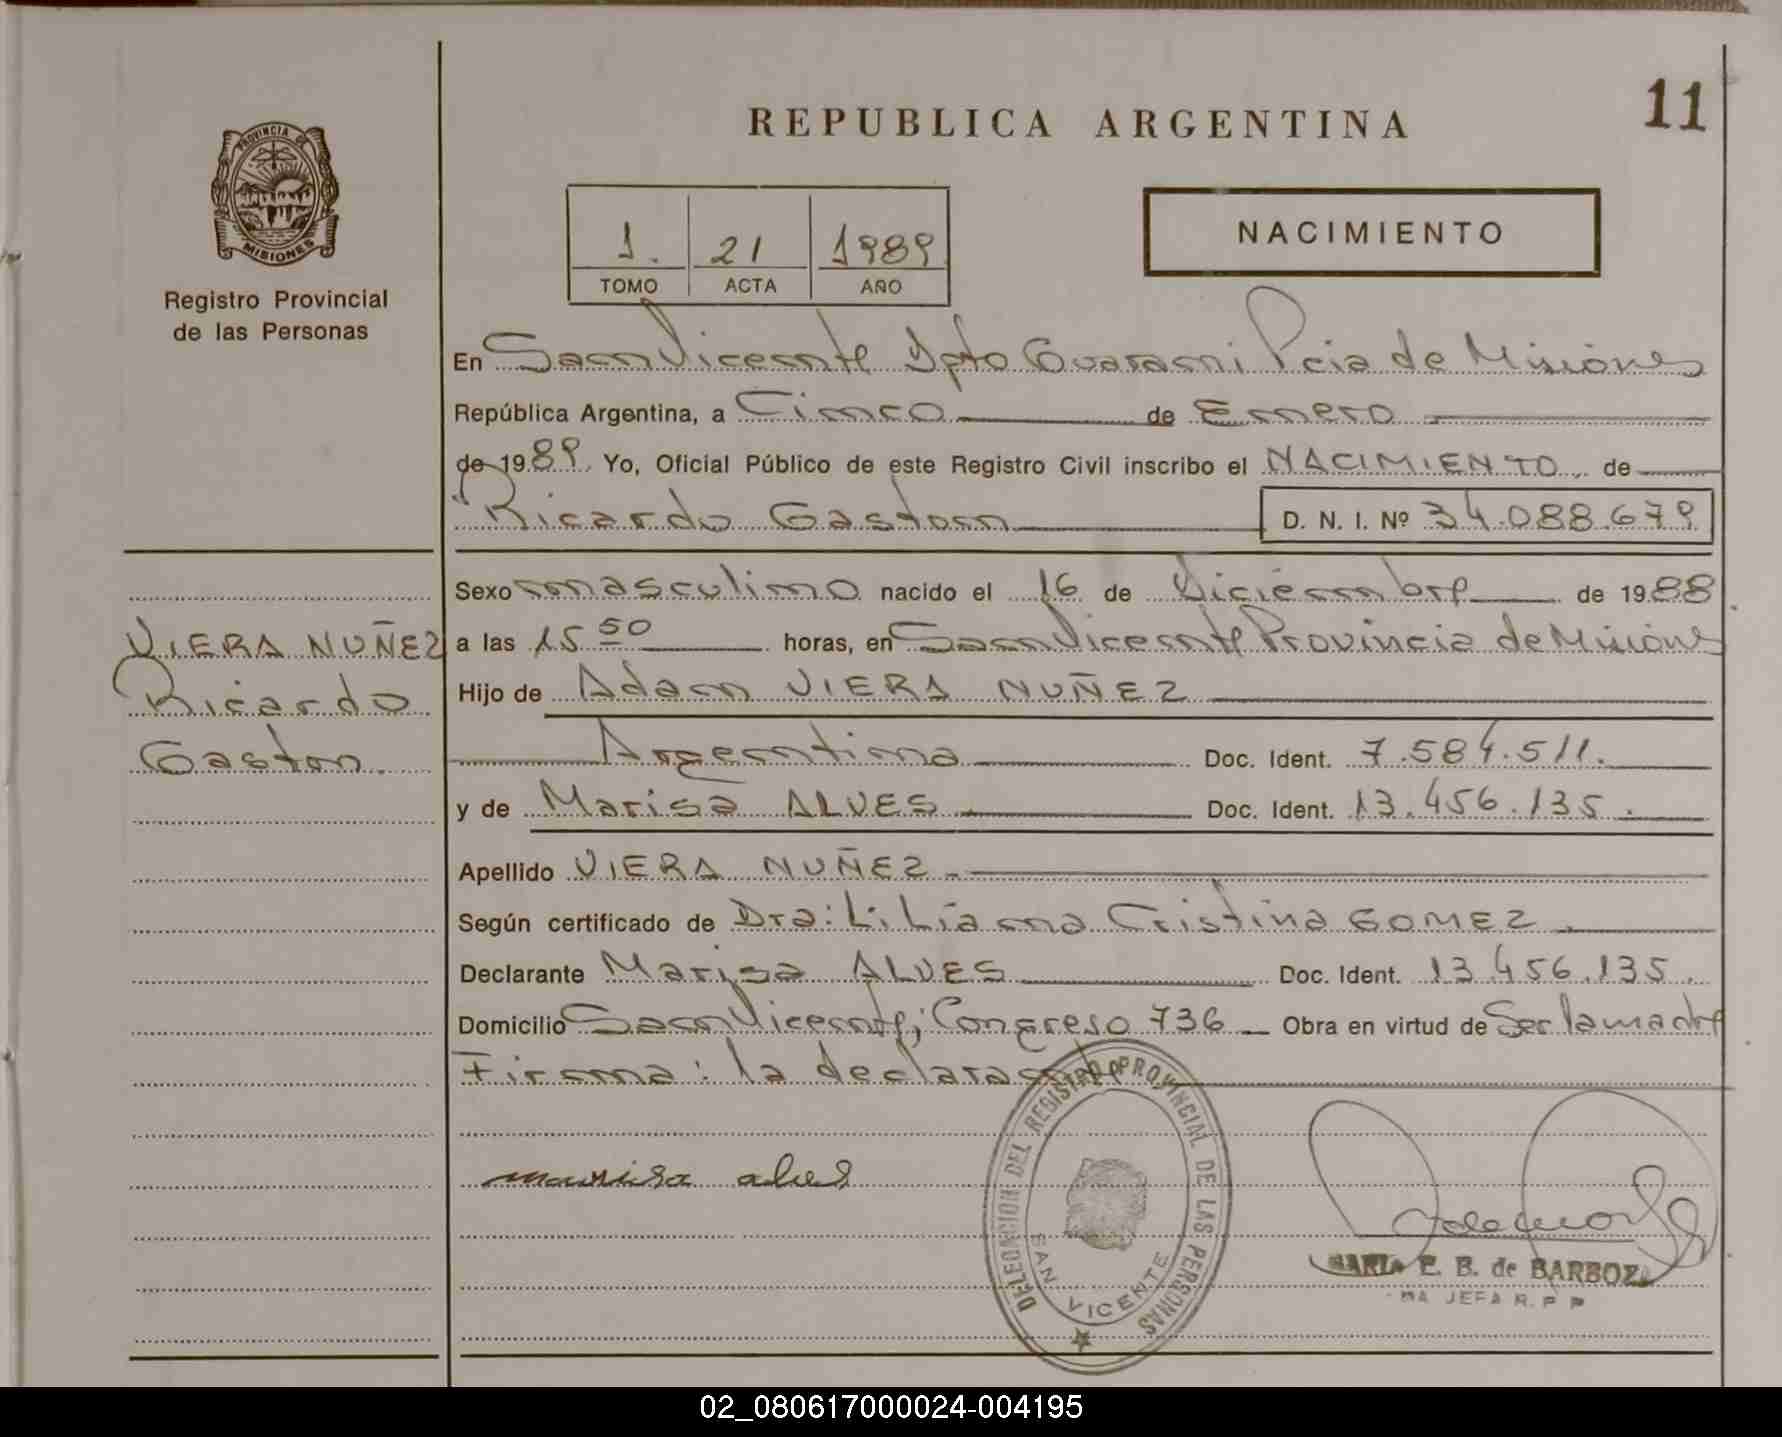 11
REPUBLICA ARGENTINA
PROVINCIA DE
MISIONES
Registro Provincial
de las Personas
1. 21 1989
TOMO ACTA AÑO
NACIMIENTO
En San Vicente Dpto Guarani Pcia de Misiones
República Argentina, a Cinco de Enero
de 1989. Yo, Oficial Público de este Registro Civil inscribo el NACIMIENTO de
Ricardo Gaston D. N. I. Nº 34.088.679
Sexo masculino nacido el 16 de Diciembre de 1988
VIERA NUÑEZ
Ricardo
Gaston.
a las 15 50 horas, en San Vicente Provincia de Misiones
Hijo de Adan VIERA NUÑEZ
Argentina Doc. Ident. 7.584.511.
y de Marisa ALVES Doc. Ident. 13.456.135.
Apellido VIERA NUÑEZ.
Según certificado de Dra: Liliana Cristina GOMEZ.
Declarante Marisa ALVES Doc. Ident. 13.456.135.
Domicilio San Vicente, Congreso 736 Obra en virtud de Ser la madre
Firma: la declarante
marisa alves
DELEGACION DEL REGISTRO PROVINCIAL DE LAS PERSONAS
SAN VICENTE
MARIA E. B. de BARBOZA
JEFA R. P P
02_080617000024-004195